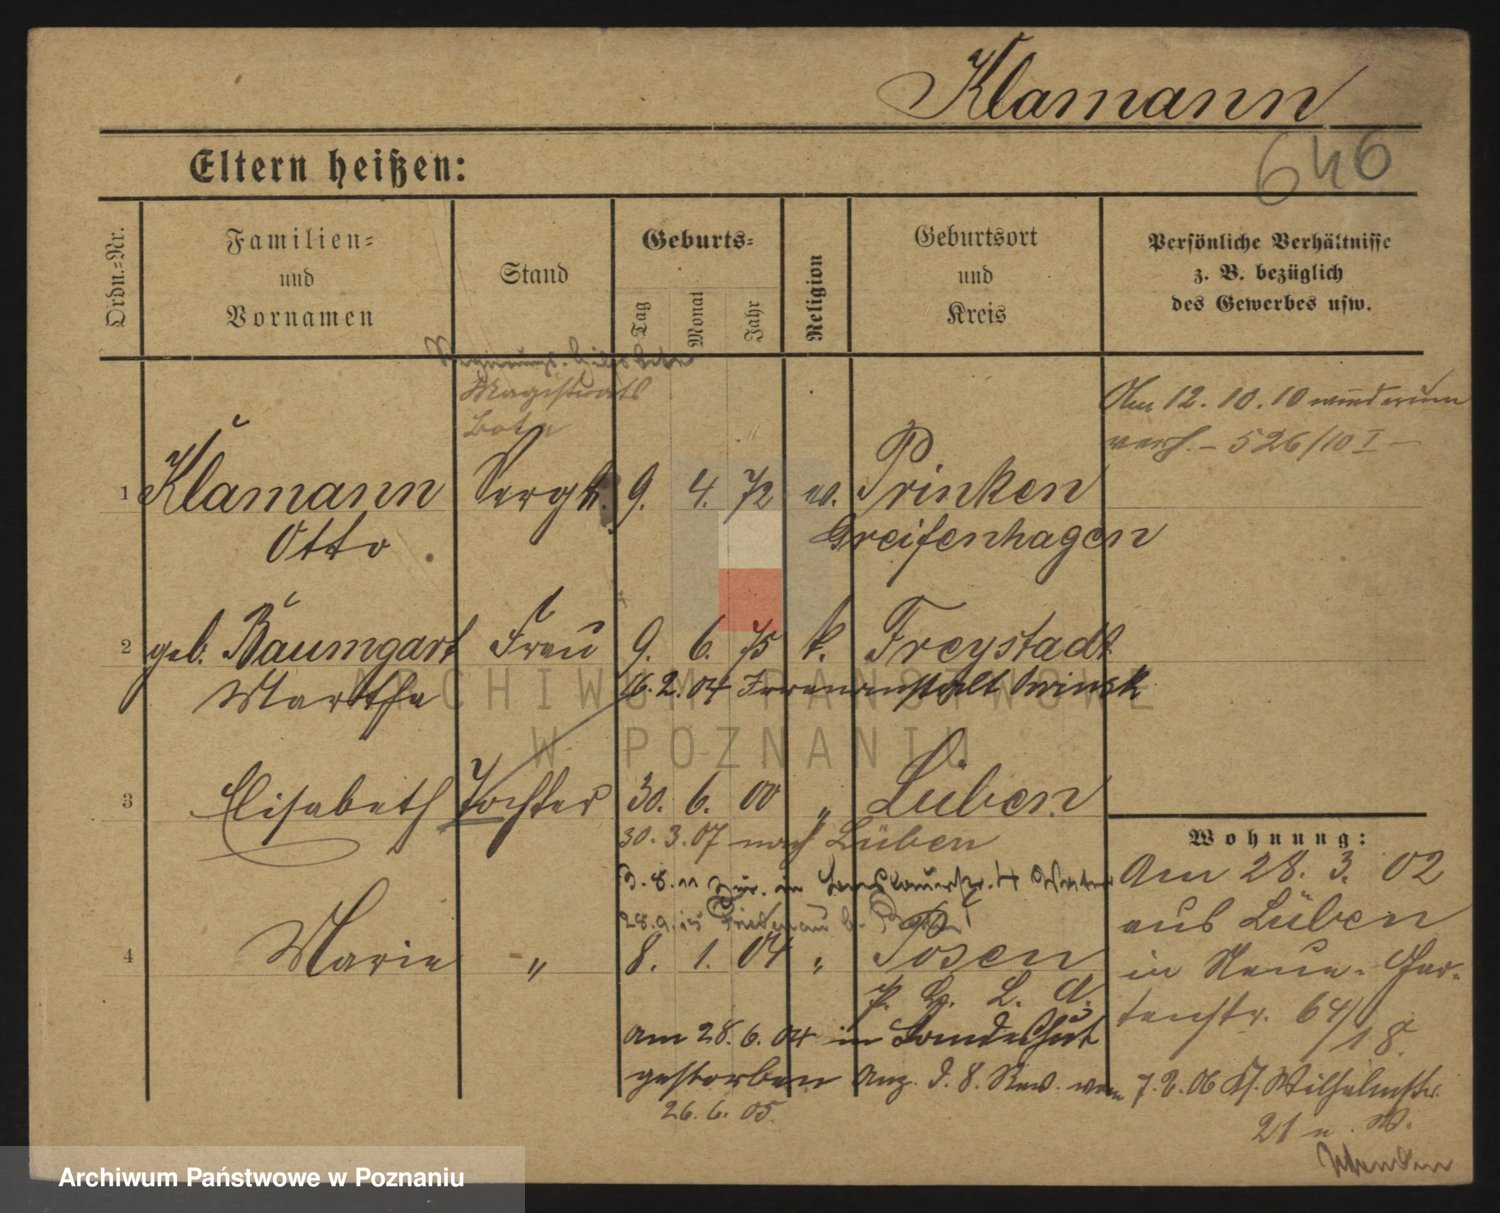 Klamann
646
Eltern heißen:
Ordn.-Nr.
Familien-
und
Vornamen
Stand
Geburts-
Tag
Monat
Jahr
Religion
Geburtsort
und
Kreis
Persönliche Verhältnisse
z. B. bezüglich
des Gewerbes usw.
Magistrats
Bote
Am 12. 10. 10
526/10 I
1 Klamann Sergt. 9. 4. 72 ev. Prinken
Otto Greifenhagen
2 geb. Baumgart Frau 9. 6. 75 k. Freystadt
Martha 16. 2. 04 Irrenanstalt Owinsk
3 Elisabeth Tochter 30. 6. 00 " Lüben
30. 3. 07 nach Lüben
3. 8. 11
28. 9. 15 Friedenau b.
4 Marie " 8. 1. 04 " Posen
P. L. L. A.
am 28. 6. 04 in Landeshut
gestorben Anz. d. 8. Rev. vom
26. 6. 05.
Wohnung:
Am 28. 3. 02
aus Lüben
in Neue-Gar-
tenstr. 64/
18.
7. 2. 06 Kl. Wilhelmstr.
21
ARCHIWUM PAŃSTWOWE
W POZNANIU
Archiwum Państwowe w Poznaniu